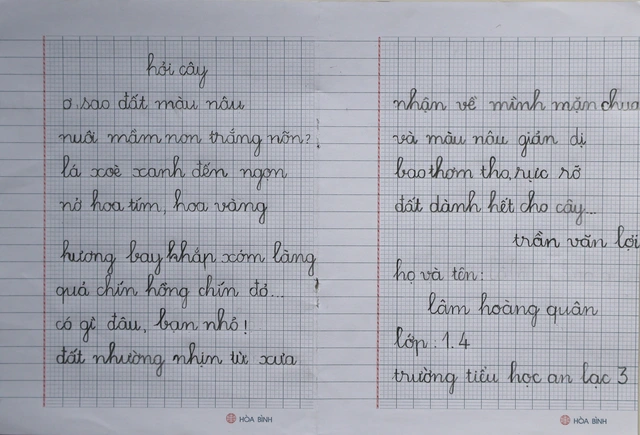 hỏi cây
ơ, sao đất màu nâu
nuôi mầm non trắng nõn?
lá xoè xanh đến ngọn
nở hoa tím, hoa vàng
hương bay khắp xóm làng
quả chín hồng chín đỏ...
có gì đâu, bạn nhỏ!
đất nhường nhịn từ xưa
HÒA BÌNH
nhận về mình mặn chua
và màu nâu giản dị
bao thơm tho, rực rỡ
đất dành hết cho cây...
trần văn lợi
họ và tên:
lâm hoàng quân
lớp: 1.4
trường tiểu học an lạc 3
HÒA BÌNH